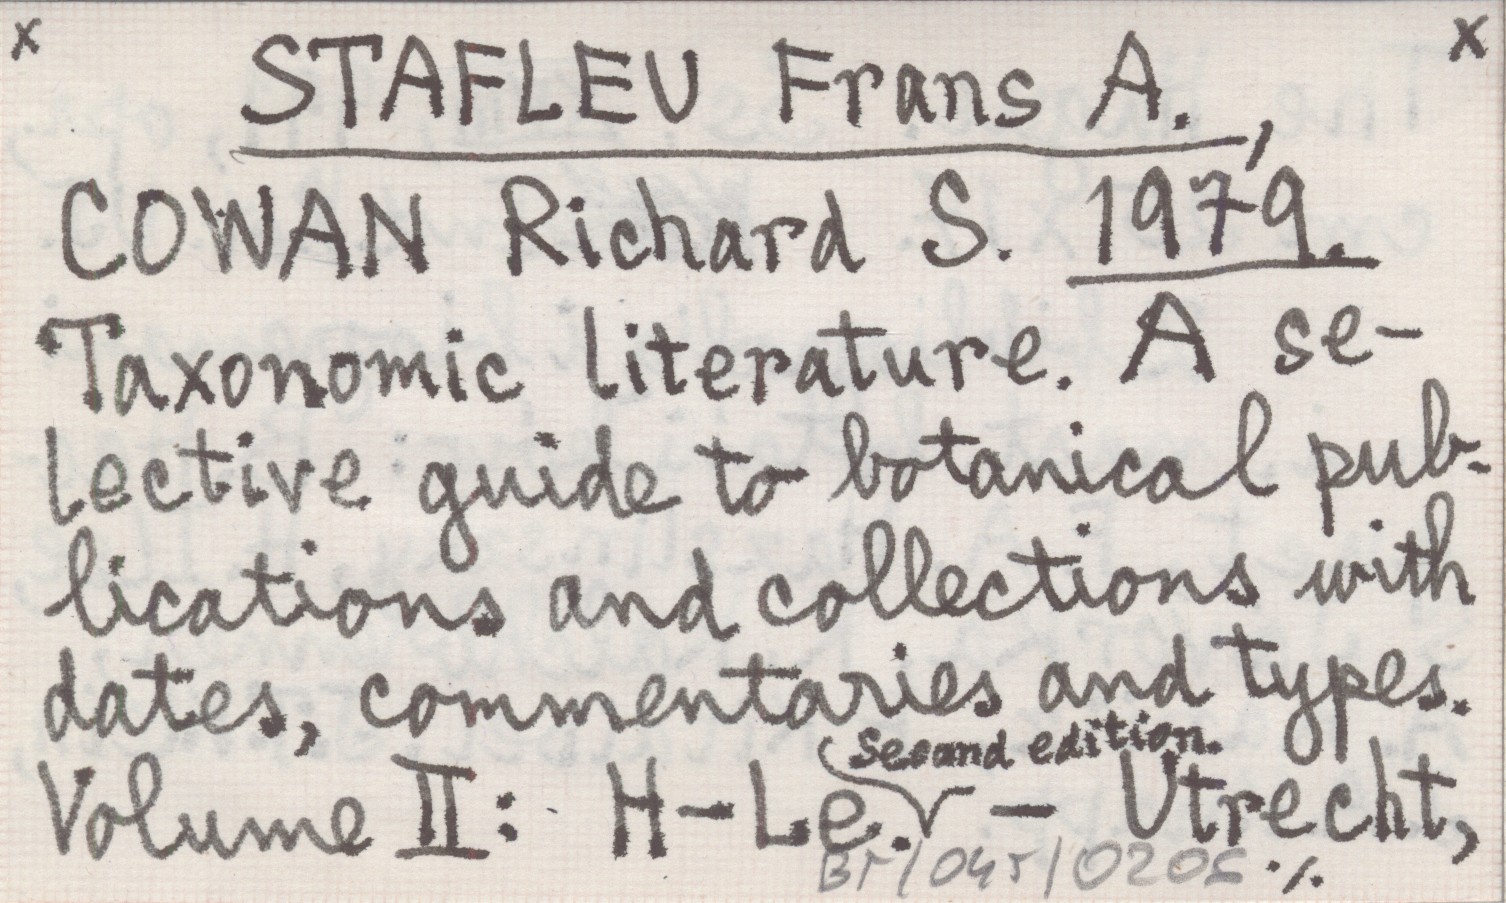 x STAFLEU Frans A., x
COWAN Richard S. 1979.
Taxonomic literature. A se-
lective guide to botanical pub-
lications and collections with
dates, commentaries and types.
Second edition.
Volume II: H-Le. √ — Utrecht,
./.